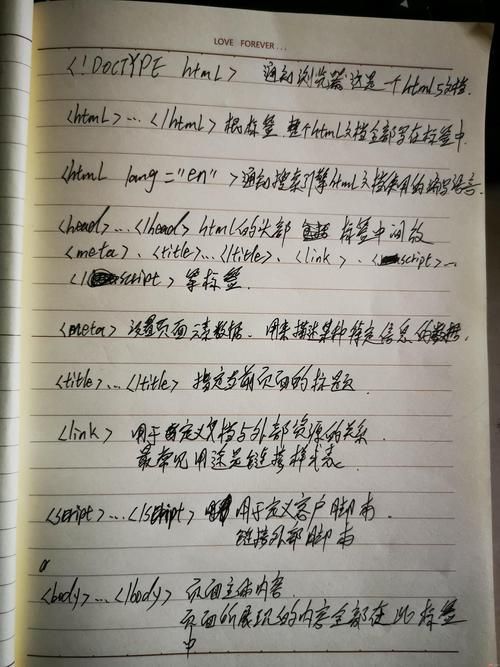 LOVE FOREVER...
<!DOCTYPE html> 通知浏览器这是一个html5文档.
<html>...</html> 根标签.整个html文档全部写在标签中.
<html lang="en"> 通知搜索引擎html文档使用的编写语言.
<head>...</head> html的头部 标签中间放
<meta>、<title>...</title>、<link>、<script>...
</script> 等标签.
<meta> 设置页面元素数据.用来描述某种特定信息的数据.
<title>...</title> 指定当前页面的标题.
<link> 用于定义文档与外部资源的关系.
最常见用途是链接样式表.
<script>...</script> 用于定义客户脚本.
链接外部脚本
<body>...</body> 页面主体内容.
页面所展现的内容全部在此标签
中